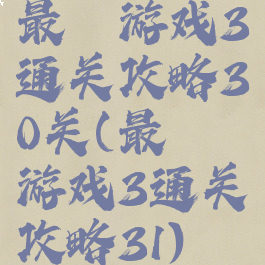 最 游戏3
通关攻略3
0关(最
游戏3通关
攻略31)